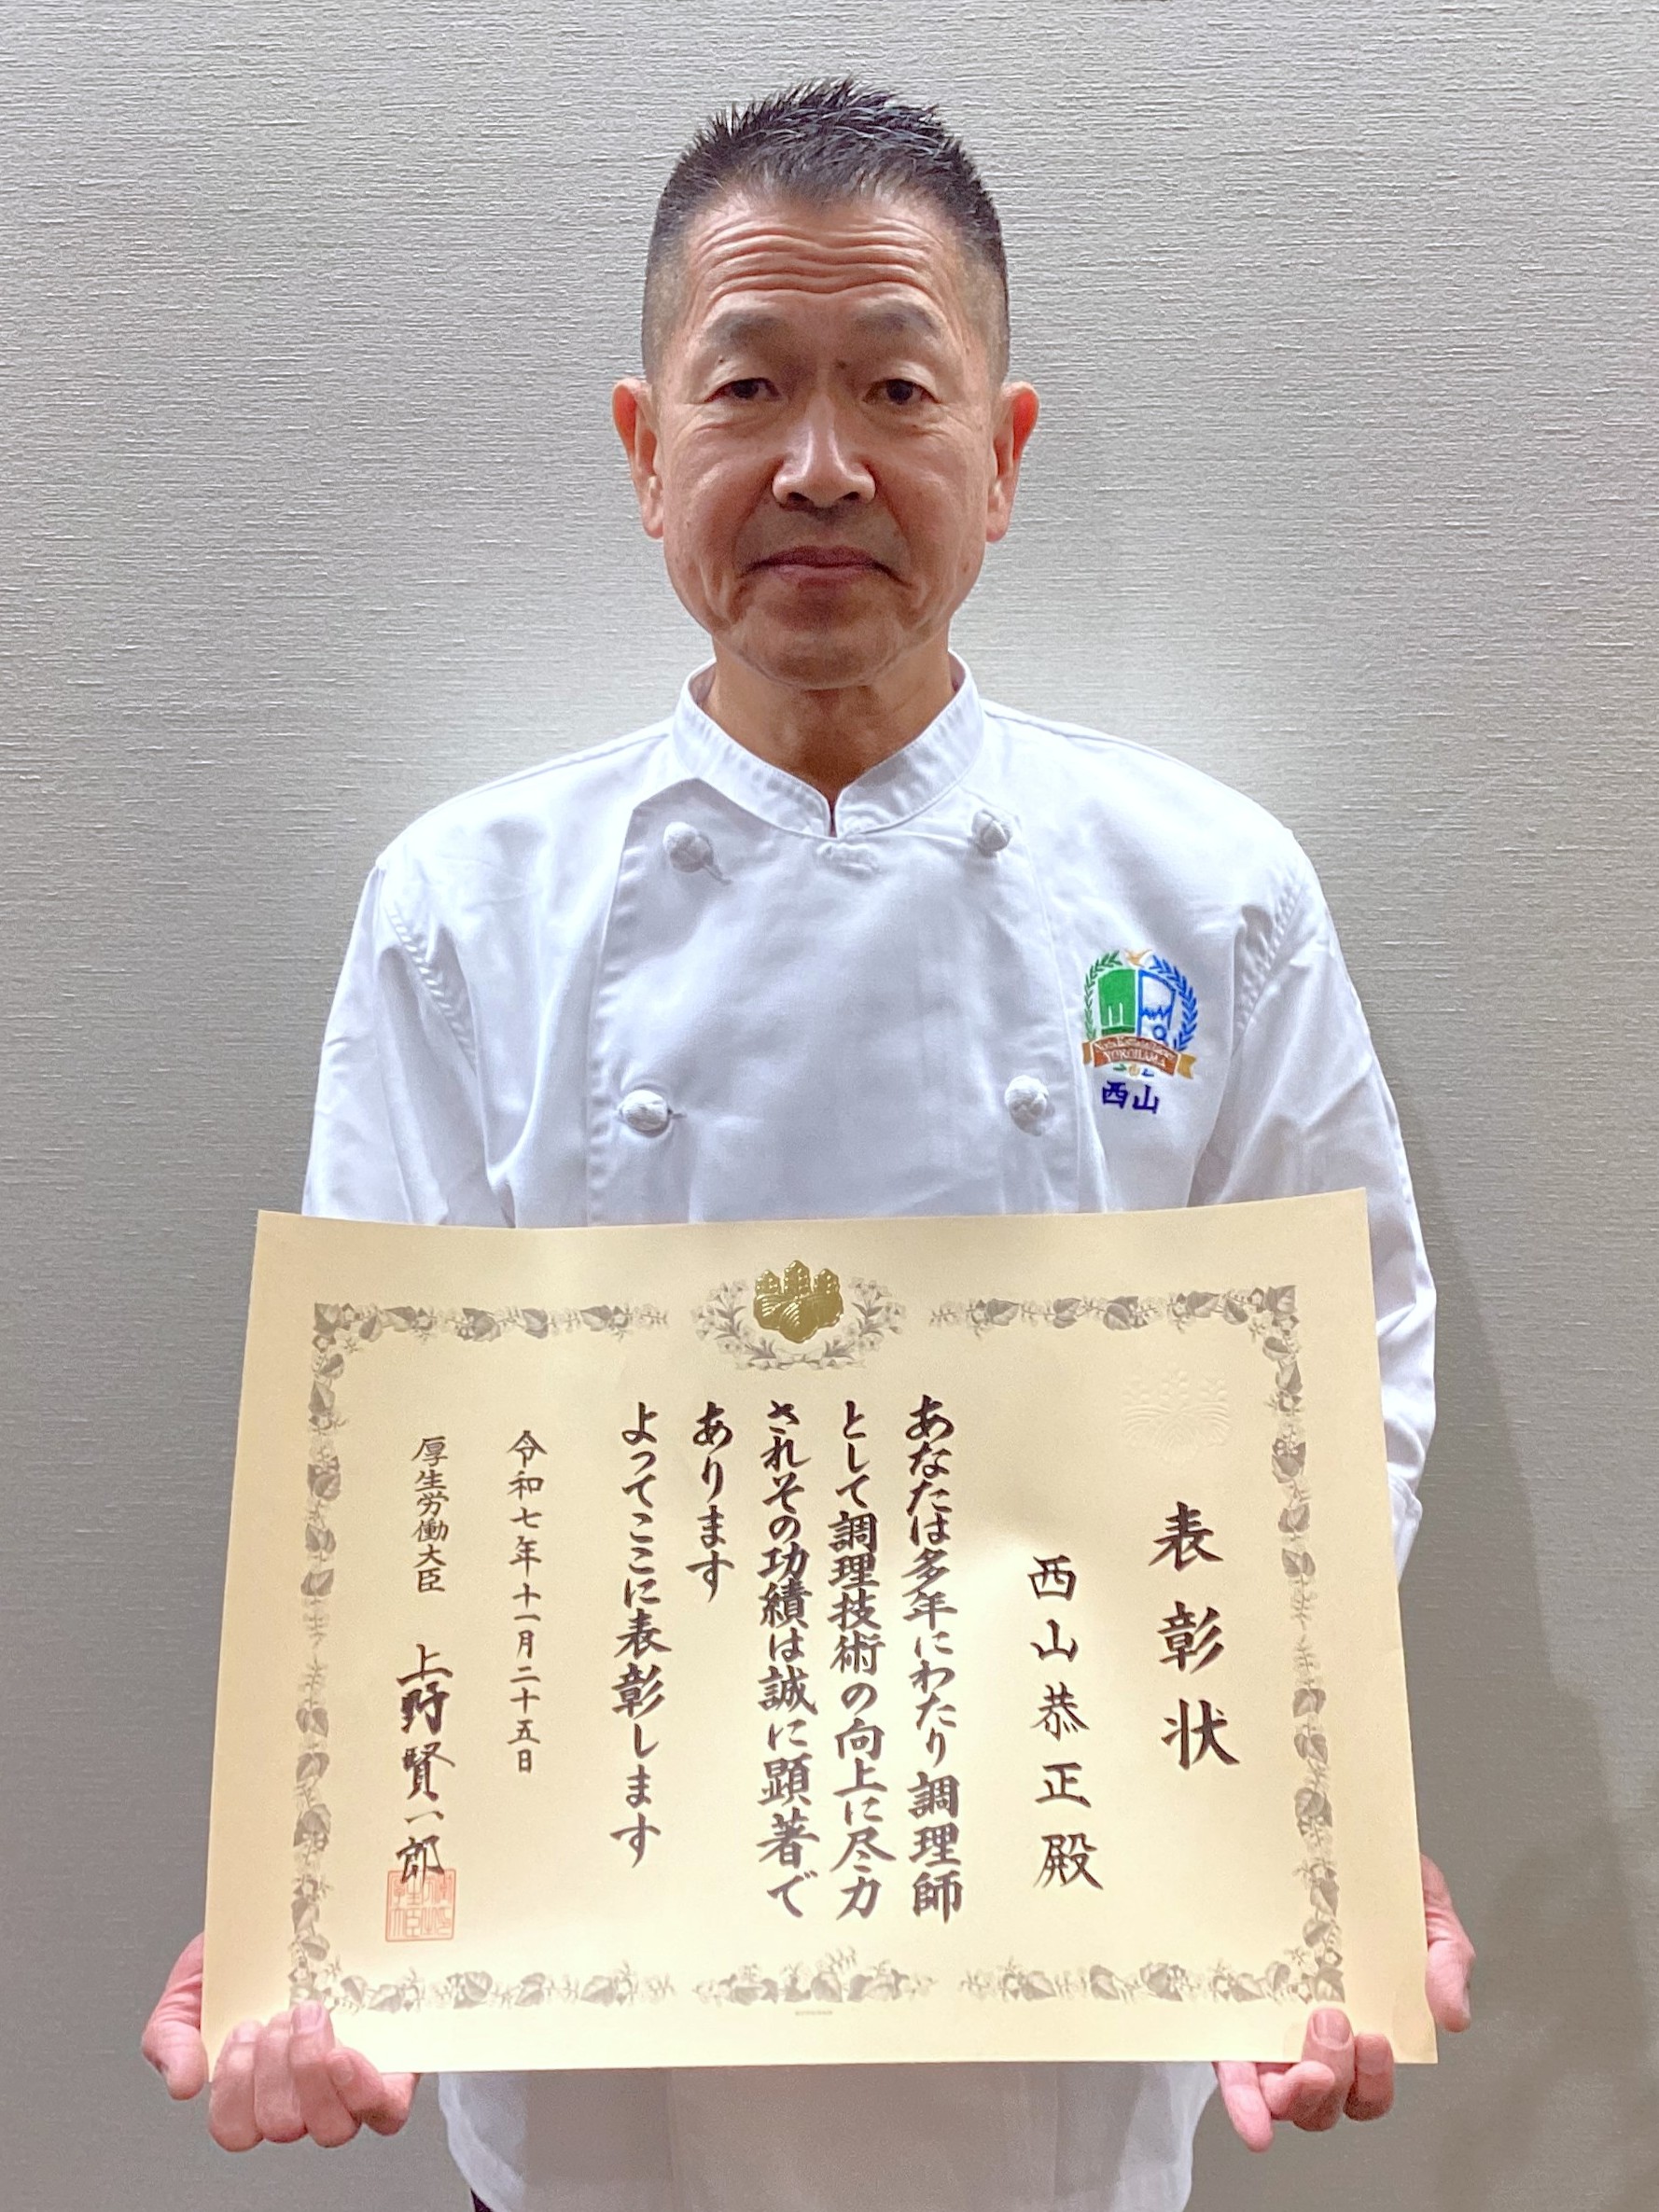 YOKOHAMA
西山
表彰状
西山恭正殿
あなたは多年にわたり調理師
として調理技術の向上に尽力
されその功績は誠に顕著で
あります
よってここに表彰します
令和七年十一月二十五日
厚生労働大臣 上野賢一郎